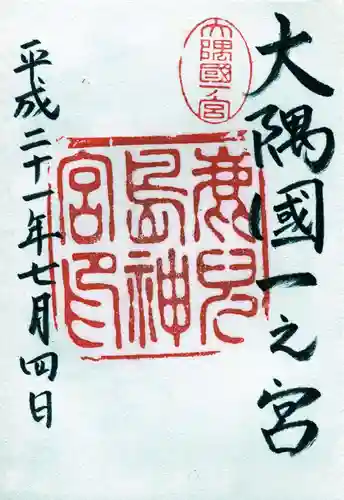 大隅國一之宮
大隅國一ノ宮
鹿兒島神宮印
平成二十一年七月四日